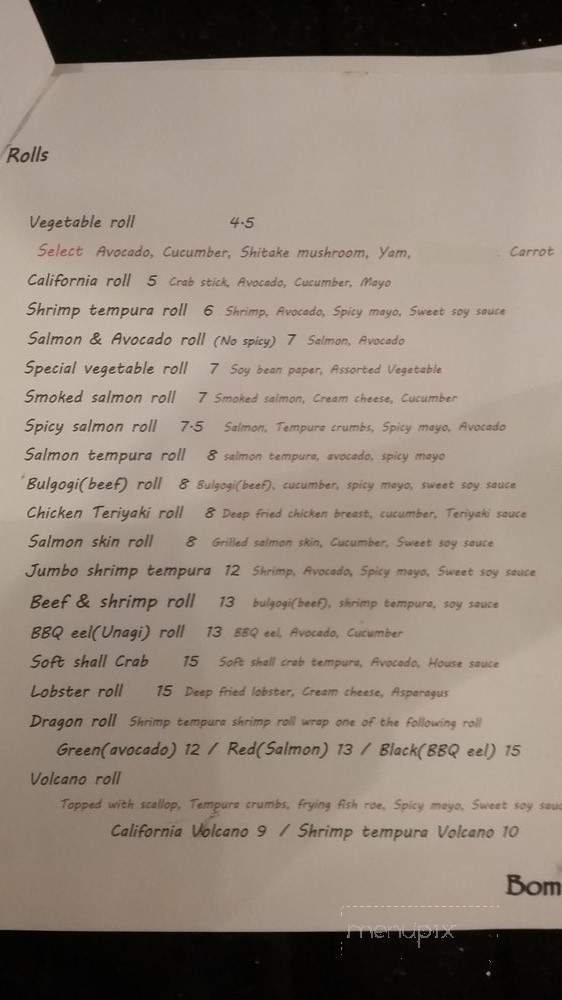 Rolls
Vegetable roll 4.5
Select Avocado, Cucumber, Shitake mushroom, Yam, Carrot
California roll 5 Crab stick, Avocado, Cucumber, Mayo
Shrimp tempura roll 6 Shrimp, Avocado, Spicy mayo, Sweet soy sauce
Salmon & Avocado roll (No spicy) 7 Salmon, Avocado
Special vegetable roll 7 Soy bean paper, Assorted Vegetable
Smoked salmon roll 7 Smoked salmon, Cream cheese, Cucumber
Spicy salmon roll 7.5 Salmon, Tempura crumbs, Spicy mayo, Avocado
Salmon tempura roll 8 salmon tempura, avocado, spicy mayo
Bulgogi(beef) roll 8 Bulgogi(beef), cucumber, spicy mayo, sweet soy sauce
Chicken Teriyaki roll 8 Deep fried chicken breast, cucumber, Teriyaki sauce
Salmon skin roll 8 Grilled salmon skin, Cucumber, Sweet soy sauce
Jumbo shrimp tempura 12 Shrimp, Avocado, Spicy mayo, Sweet soy sauce
Beef & shrimp roll 13 bulgogi(beef), shrimp tempura, soy sauce
BBQ eel(Unagi) roll 13 BBQ eel, Avocado, Cucumber
Soft shall Crab 15 Soft shall crab tempura, Avocado, House sauce
Lobster roll 15 Deep fried lobster, Cream cheese, Asparagus
Dragon roll Shrimp tempura shrimp roll wrap one of the following roll
Green(avocado) 12 / Red(Salmon) 13 / Black(BBQ eel) 15
Volcano roll
Topped with scallop, Tempura crumbs, frying fish roe, Spicy mayo, Sweet soy sauc
California Volcano 9 / Shrimp tempura Volcano 10
Bom
menupix